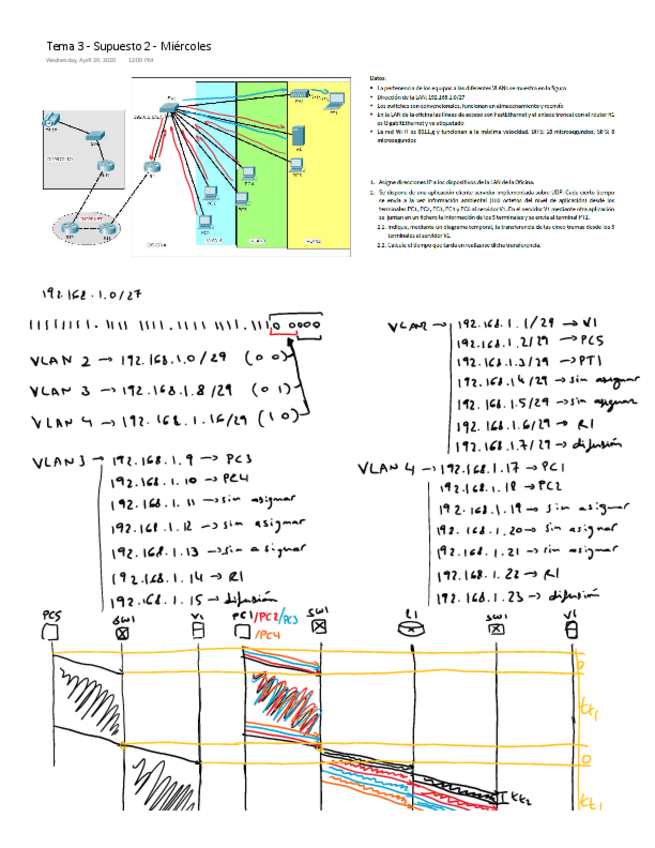 Tema 3 - Supuesto 2 - Miércoles
Wednesday, April 29, 2020 12:00 PM
Datos:
La pertenencia de los equipos a las diferentes VLANs se muestra en la figura
Dirección de la LAN: 192.168.1.0/27
Los switches son convencionales, funcionan en almacenamiento y reenvío
En la LAN de la oficina las líneas de acceso son FastEthernet y el enlace troncal con el router R1
es GigabitEthernet y va etiquetado
La red Wi-Fi es 802.11g y funcionan a la máxima velocidad. DIFS: 28 microsegundos; SIFS: 8
microsegundos
1. Asigne direcciones IP a los dispositivos de la LAN de la Oficina.
2. Se dispone de una aplicación cliente servidor implementada sobre UDP. Cada cierto tiempo
se envía a la vez información ambiental (100 octetos del nivel de aplicación) desde los
terminales PC1, PC2, PC3, PC4 y PC5 al servidor V1. En el servidor V1 mediante otra aplicación
se juntan en un fichero la información de los 5 terminales y se envía al terminal PT1.
2.1. Indique, mediante un diagrama temporal, la transferencia de las cinco tramas desde los 5
terminales al servidor V1.
2.2. Calcule el tiempo que tarda en realizarse dicha transferencia.
INTERNET
OFICINA
192.168.1.0/27
11111111.1111 1111.1111 1111.1110 0000
VLAN 2 → 192.168.1.0/29 (0 0)
VLAN 3 → 192.168.1.8/29 (0 1)
VLAN 4 → 192.168.1.16/29 (1 0)
VLAN2 → 192.168.1.1/29 → V1
192.168.1.2/29 → PC5
192.168.1.3/29 → PT1
192.168.1.4/29 → sin asignar
192.168.1.5/29 → sin asignar
192.168.1.6/29 → R1
192.168.1.7/29 → difusión
VLAN3 → 192.168.1.9 → PC3
192.168.1.10 → PC4
192.168.1.11 → sin asignar
192.168.1.12 → sin asignar
192.168.1.13 → sin asignar
192.168.1.14 → R1
192.168.1.15 → difusión
VLAN 4 → 192.168.1.17 → PC1
192.168.1.18 → PC2
192.168.1.19 → sin asignar
192.168.1.20 → sin asignar
192.168.1.21 → sin asignar
192.168.1.22 → R1
192.168.1.23 → difusión
PC5 SW1 V1 PC1/PC2/PC3 SW1 R1 SW1 V1
/PC4
tt1
tt2
tt1